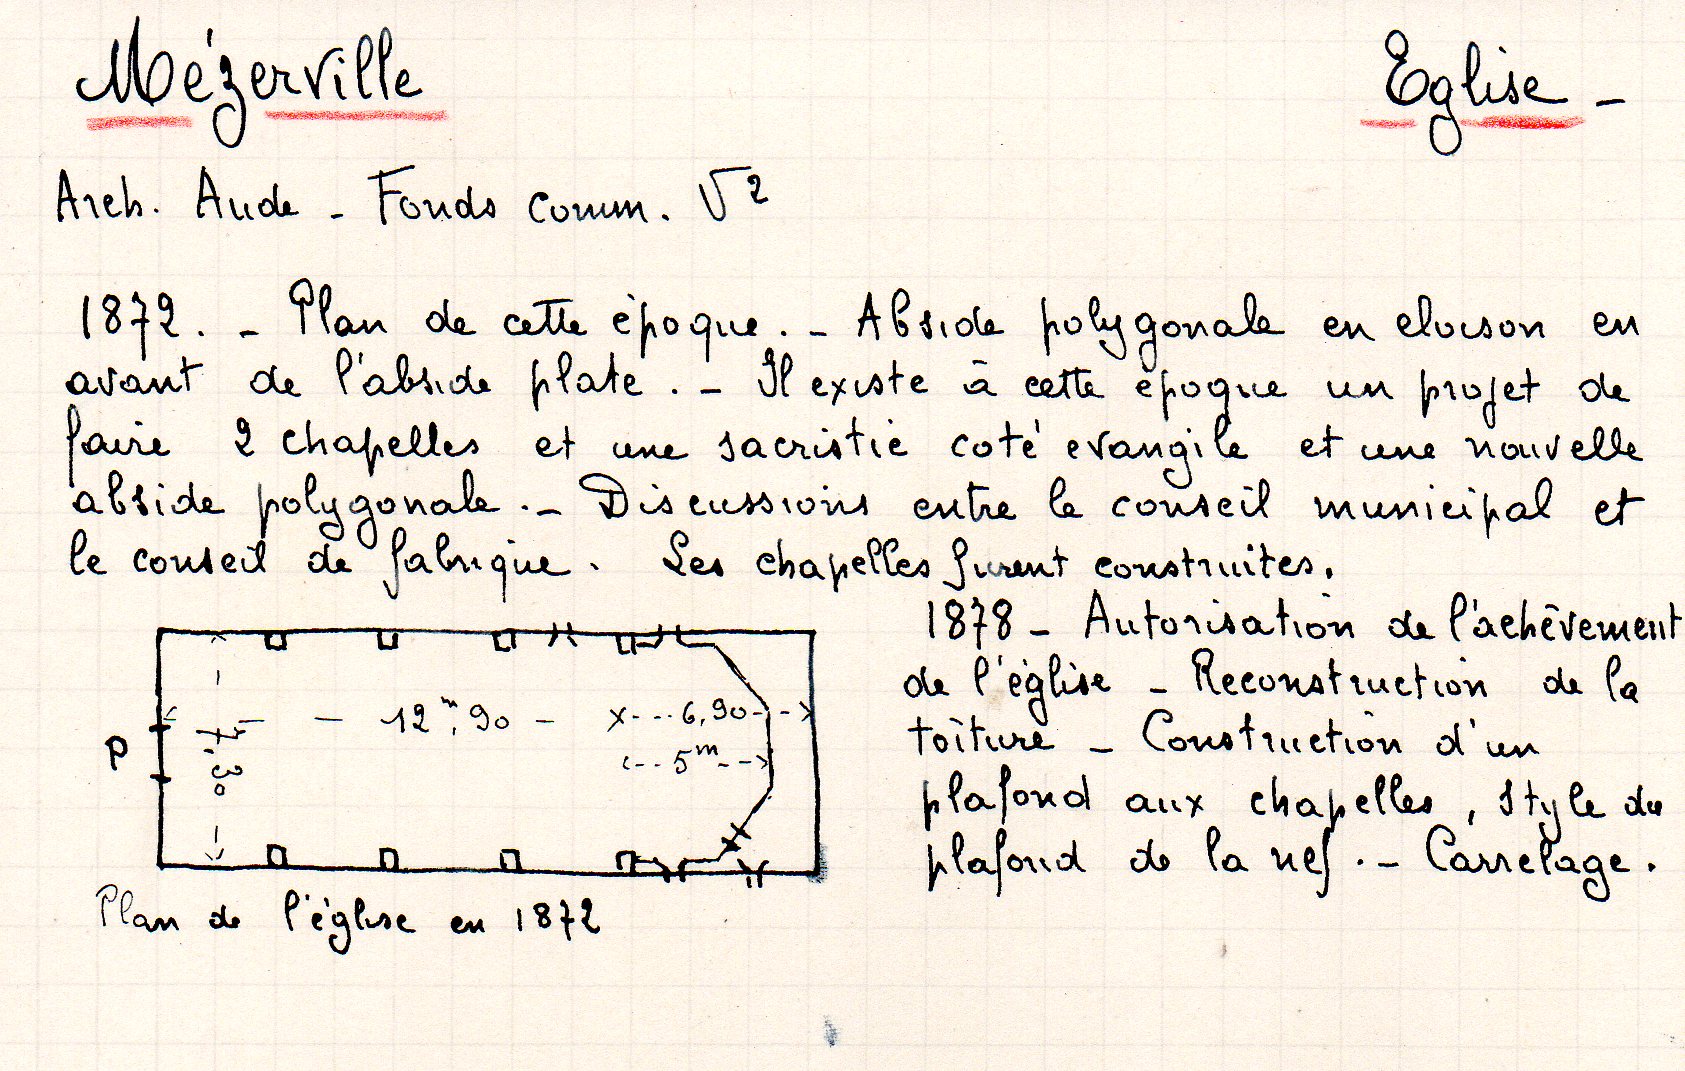 Mézerville Eglise -
Arch. Aude - Fonds comm. V²
1872. - Plan de cette époque. - Abside polygonale en cloison en
avant de l'abside plate. - Il existe à cette époque un projet de
faire 2 chapelles et une sacristie coté evangile et une nouvelle
abside polygonale. - Discussions entre le conseil municipal et
le conseil de fabrique. Les chapelles furent construites.
1878 - Autorisation de l'achêvement
de l'église - Reconstruction de la
toiture - Construction d'un
plafond aux chapelles, style du
plafond de la nef. - Carrelage.
12m,90
6,90
5m
P
Plan de l'église en 1872